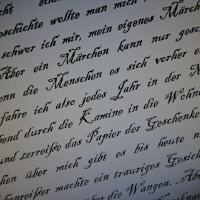 cht ein
eschichte wollte man mich
schwor ich mir, mein eigenes Märch
Aber ein Märchen kann nur gesc
enn die Menschen es sich vorher e
fahre ich also jedes Jahr in der N
bend durch die Kamine in die Wohn
und zerreiße das Papier der Geschenke
hen über mich gibt es bis heute n
chenreißer machte ein trauriges Gesich
über die Wangen. „Ab